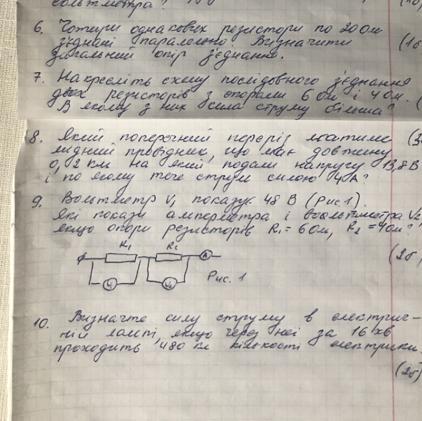 6. Чотири однакових резистори по 20 Ом (1б
з'єднані паралельно. Визначити
загальний опір з'єднання.
7. Накресліть схему послідовного з'єднання
двох резисторів з опорами 6 Ом і 4 Ом.
В якому з них сила струму більша?
8. Який поперечний переріз матиме
мідний провідник, що має довжину
0,2 км на який подали напругу 13,8 В
і по якому тече струм силою 4 А?
9. Вольтметр V₁ показує 48 В (Рис. 1).
Які покази амперметра і вольтметра V₂
якщо опори резисторів R₁ = 6 Ом, R₂ = 4 Ом?
(2б)
R₁ R₂ A
V₁ V₂ Рис. 1
10. Визначте силу струму в електрич-
ній лампі, якщо через неї за 16 хв
проходить 480 Кл кількості електрики
(2б)